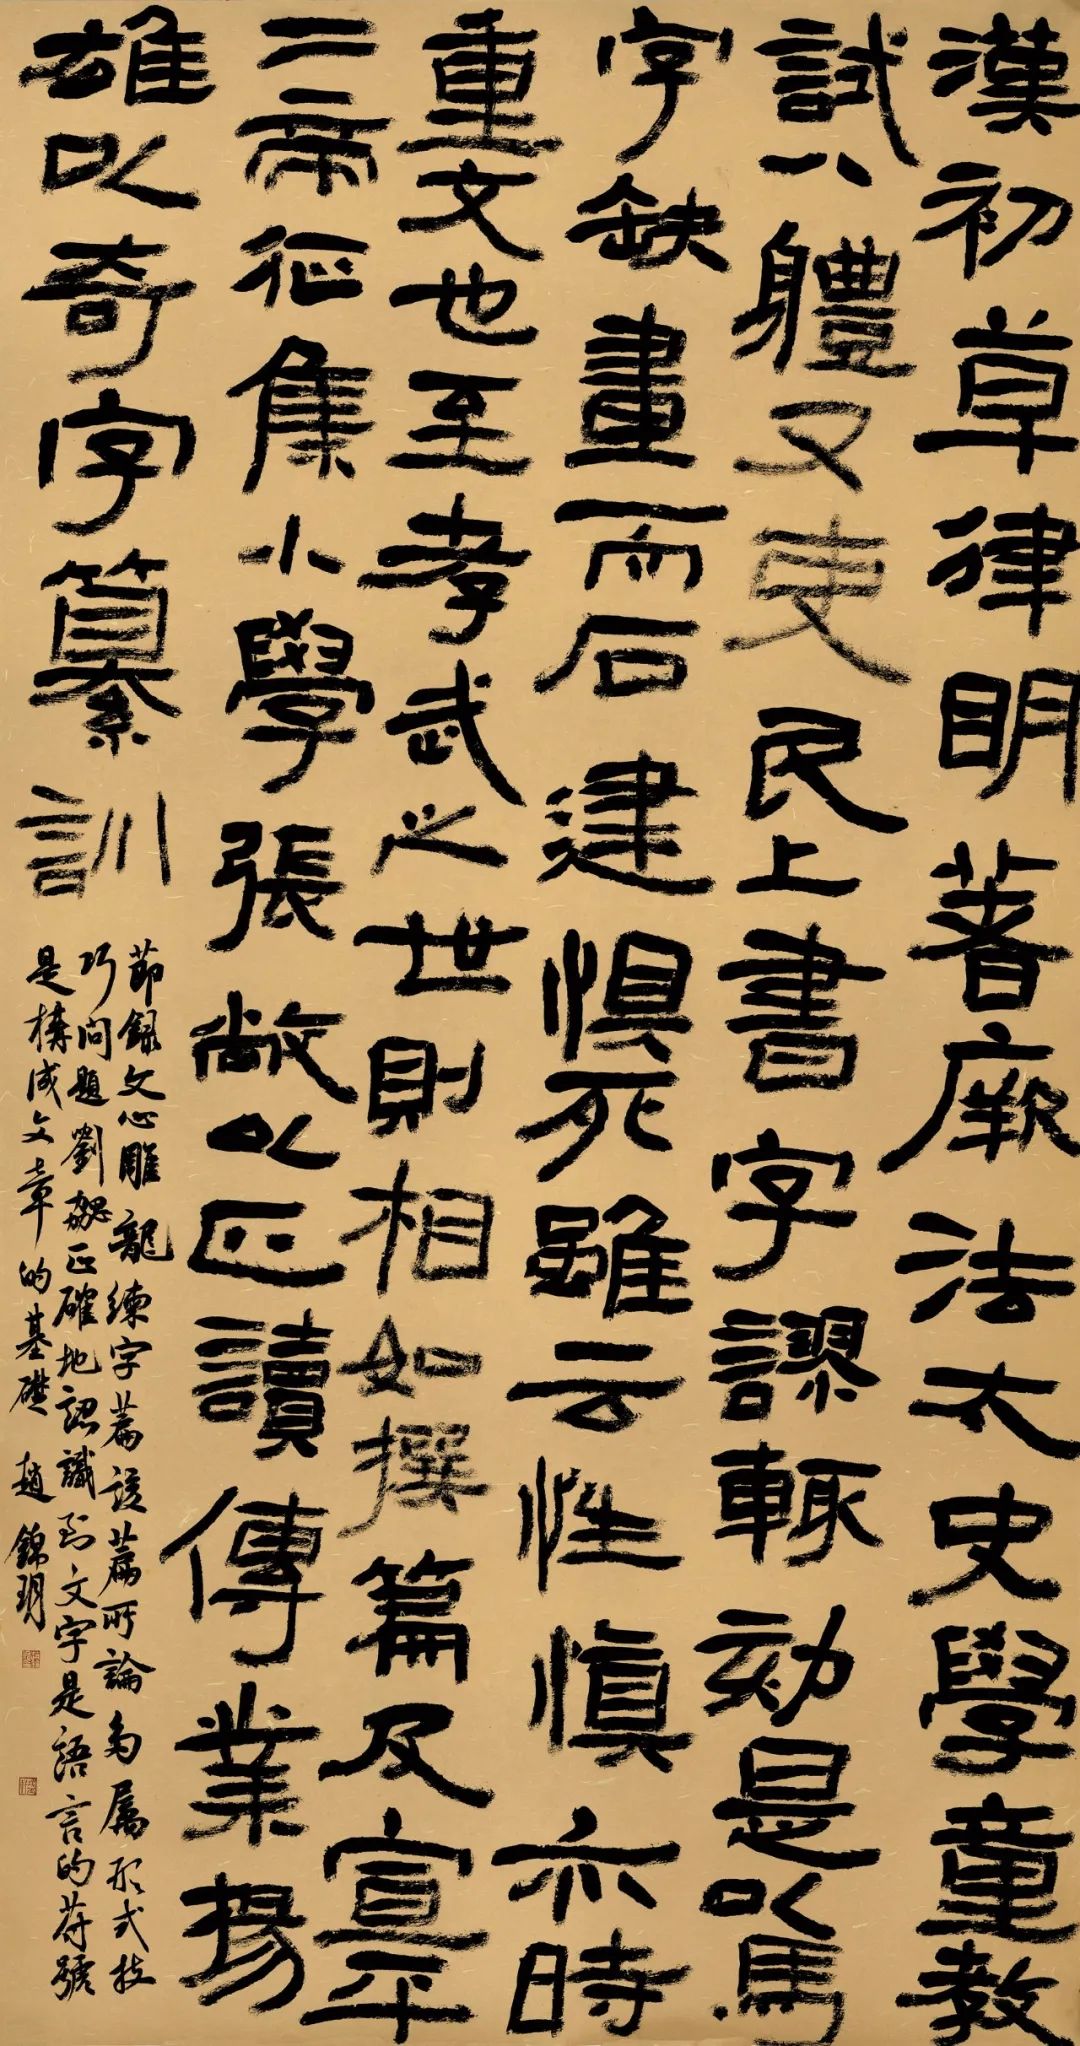 漢初草律明著厥法太史學童教
試八體又吏民上書字謬輒劾是以馬
字缺畫而石建懼死雖云性慎亦時
重文也至孝武之世則相如撰篇及宣平
二帝征集小學張敞以正讀傳業揚
雄以奇字纂訓
節錄文心雕龍練字篇該篇所論多屬形式技
巧問題劉勰正確地認識到文字是語言的符號
是構成文章的基礎 趙錦玥